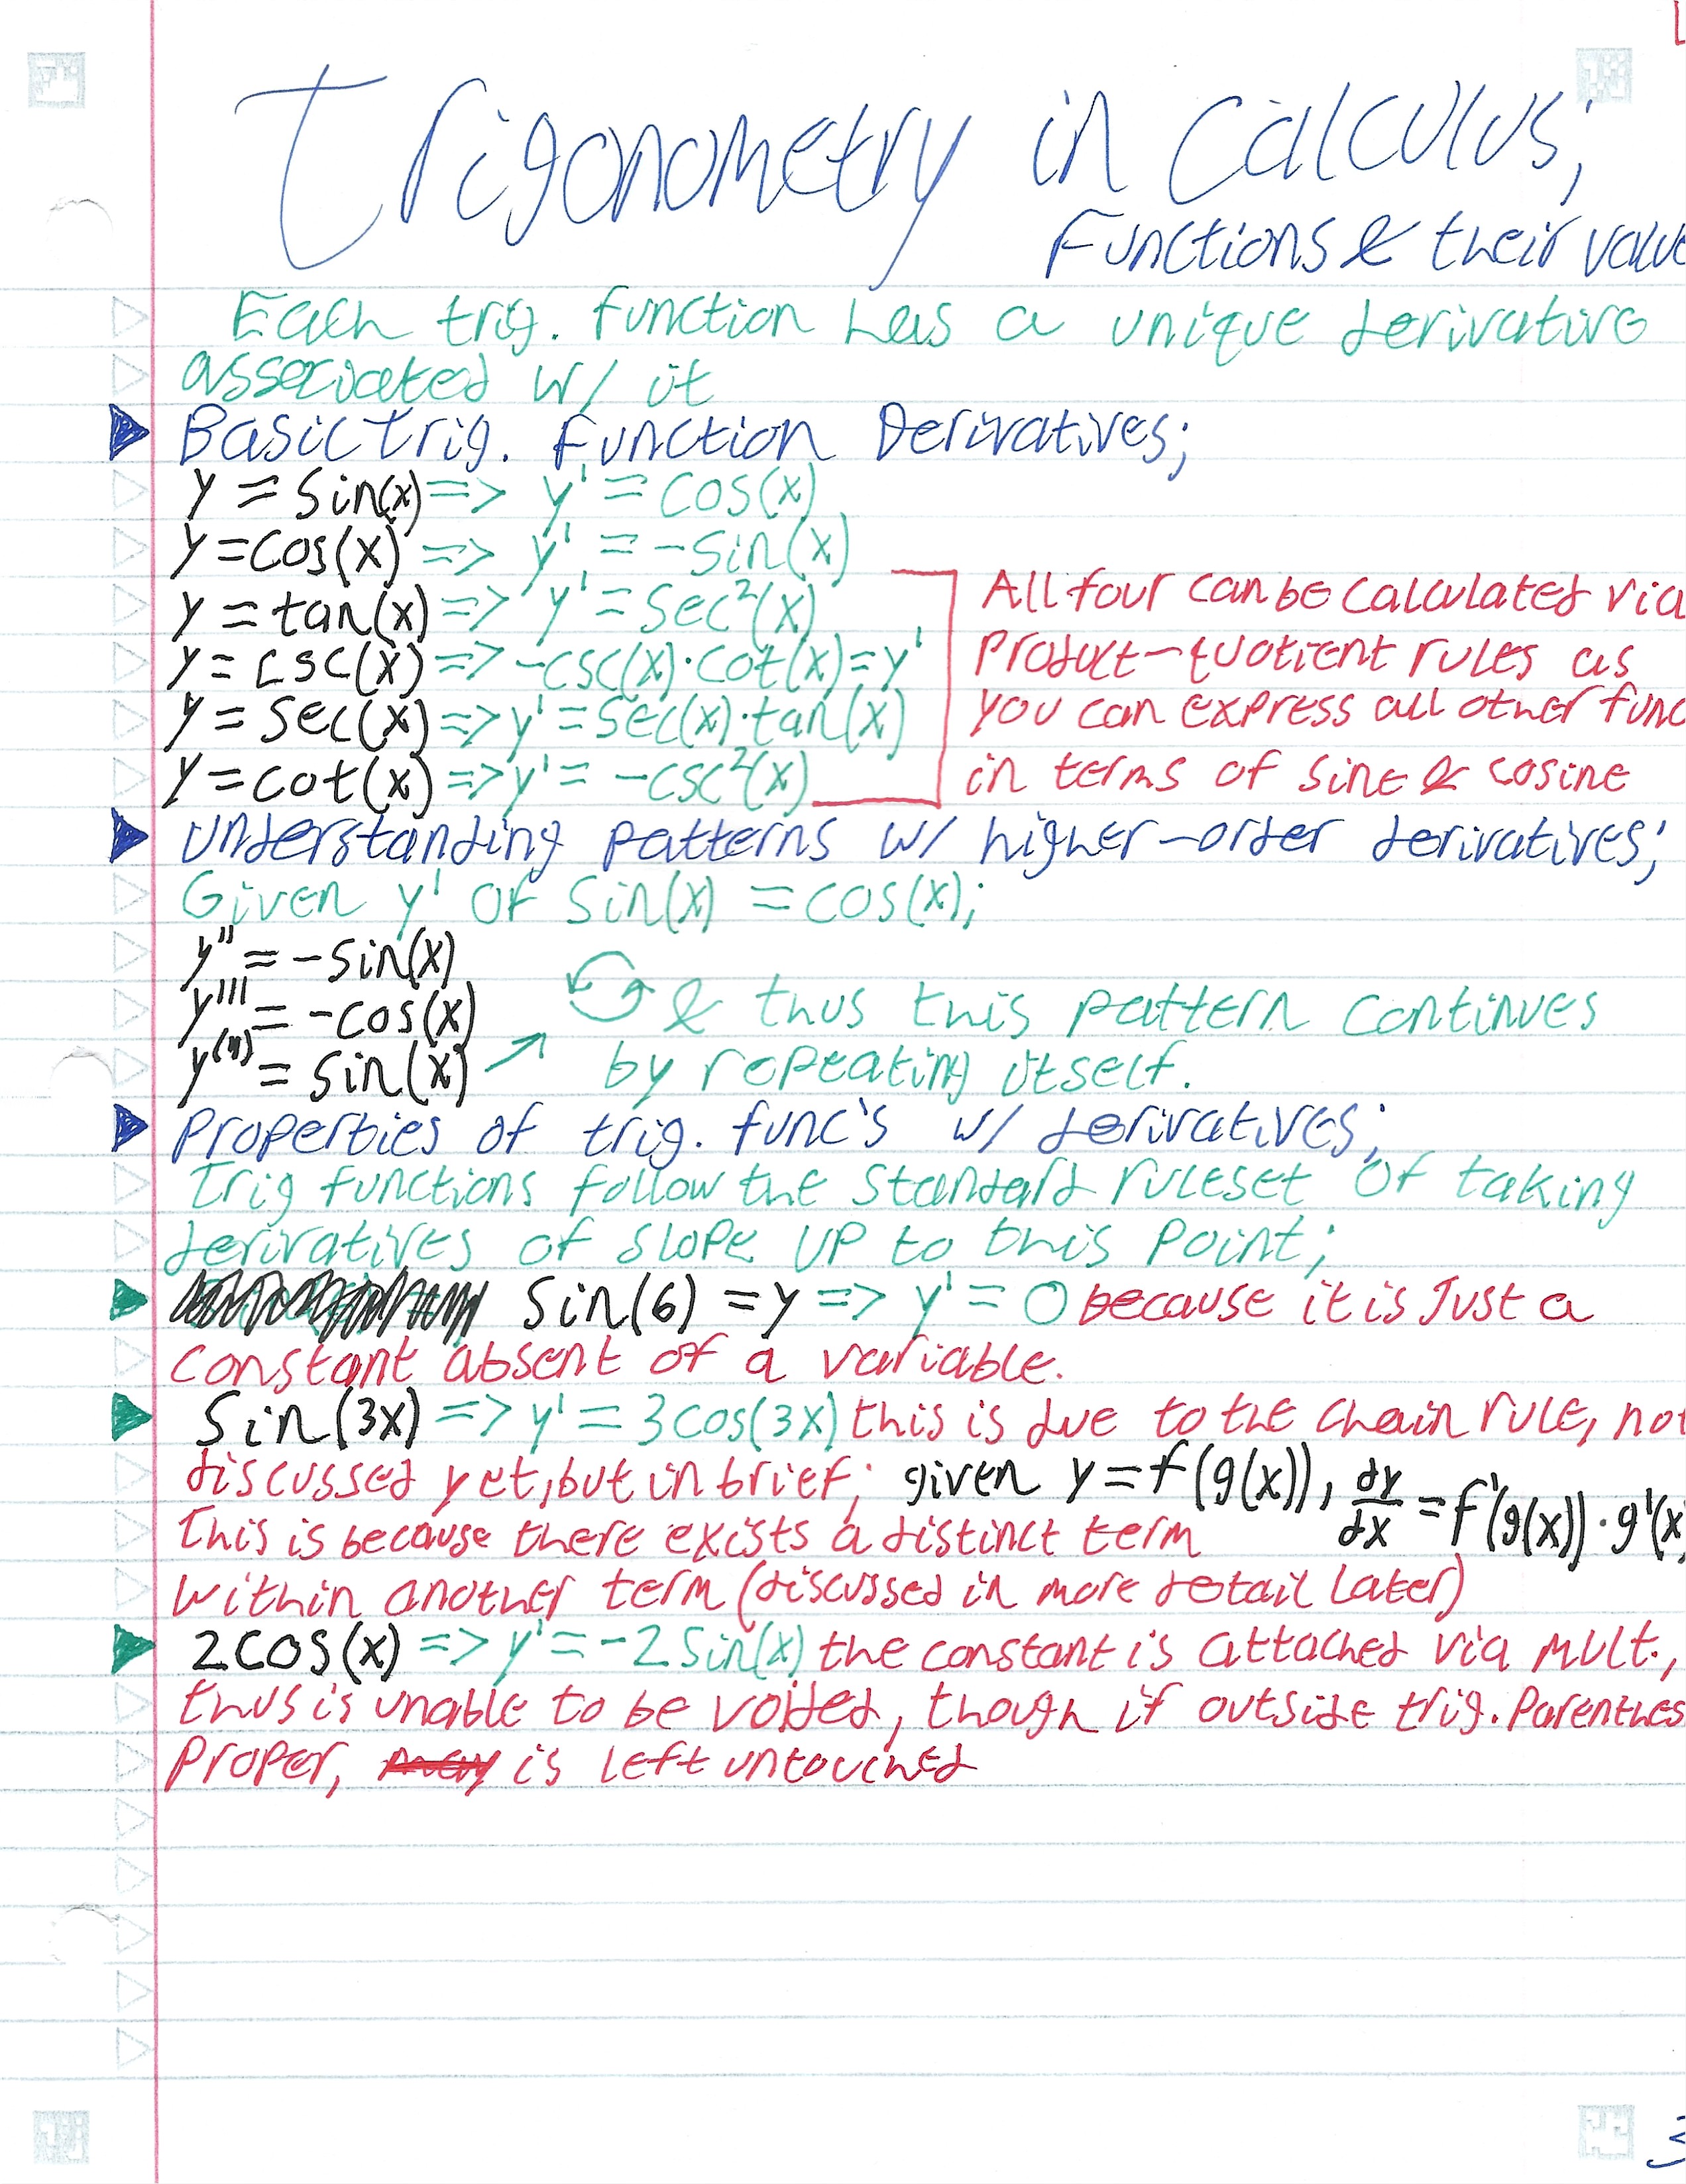 Trigonometry in Calculus;
Functions & their value
Each trig. function has a unique derivative
associated w/ it
Basic trig. Function Derivatives;
y = sin(x) => y' = cos(x)
y = cos(x) => y' = -sin(x)
y = tan(x) => y' = sec²(x)
y = csc(x) => -csc(x)·cot(x) = y'
y = sec(x) => y' = sec(x)·tan(x)
y = cot(x) => y' = -csc²(x)
All four can be calculated via
product-quotient rules as
you can express all other func
in terms of sine & cosine
Understanding patterns w/ higher-order derivatives;
Given y' of sin(x) = cos(x);
y'' = -sin(x)
y''' = -cos(x)
y⁽⁴⁾ = sin(x)
& thus this pattern continues
by repeating itself.
Properties of trig. func's w/ derivatives;
Trig functions follow the standard ruleset of taking
derivatives of slope up to this point;
sin(6) = y => y' = 0 because it is just a
constant absent of a variable.
sin(3x) => y' = 3cos(3x) this is due to the chain rule, not
discussed yet, but in brief; given y = f(g(x)), dy/dx = f'(g(x))·g'(x)
This is because there exists a distinct term
within another term (discussed in more detail later)
2cos(x) => y' = -2sin(x) the constant is attached via mult.,
thus is unable to be voided, though if outside trig. parenthes
proper, is left untouched